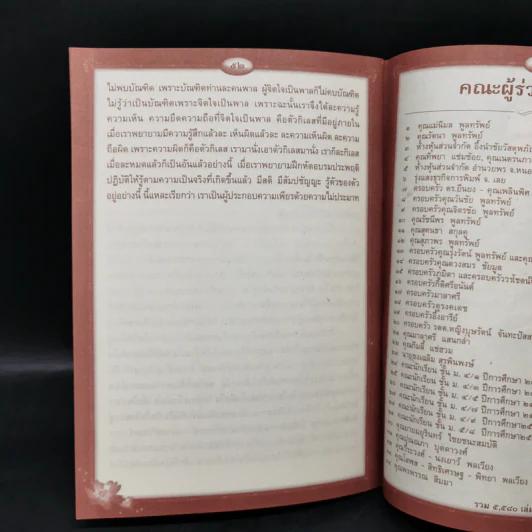 ๕๒
ไม่พบบัณฑิต เพราะบัณฑิตท่านละคนพาล ผู้จิตใจเป็นพาลก็ไม่คบบัณฑิต
ไม่รู้ว่าเป็นบัณฑิตเพราะจิตใจเป็นพาล เพราะฉะนั้นเราจึงได้ละความรู้
ความเห็น ความยึดความถือที่จิตใจเป็นพาล คือตัวกิเลสที่มีอยู่ภายใน
เมื่อเราพยายามมีความรู้สึกแล้วละ เห็นผิดแล้วละ ละความเห็นผิด ละความ
ถือผิด เพราะความผิดก็คือตัวกิเลส เรามานั่งเอาตัวกิเลสมานั่ง เราก็ละกิเลส
เมื่อละหมดแล้วก็เป็นอันแล้วอย่างนี้ เมื่อเราพยายามฝึกหัดอบรมประพฤติ
ปฏิบัติให้รู้ตามความเป็นจริงที่เกิดขึ้นแล้ว มีสติ มีสัมปชัญญะ รู้ตัวของตัว
อยู่อย่างนี้ นี้แหละเรียกว่า เราเป็นผู้ประกอบความเพียรด้วยความไม่ประมาท
คณะผู้ร่ว
๑ คุณแม่นิมล พูลทรัพย์
๒ คุณรัตนา พูลทรัพย์
๓ ห้างหุ้นส่วนจำกัด อึ้งนำชัยวัสดุ
๔ คุณทิพยา แช่มช้อย,
๕ ห้างหุ้นส่วนจำกัด อำนวยพร
๖ รุ่งแสงธุรกิจการพิมพ์ จ. เลย
๗ ครอบครัว ดร.ยืนยง - คุณเพลินพิศ
๘ ครอบครัวคุณวันชัย พูลทรัพย์
๙ ครอบครัวคุณจิตรชัย พูลทรัพย์
๑๐ คุณรัชนีพร พูลทรัพย์
๑๑ คุณสุคนธา สกุลคู
๑๒ คุณสุภาพร พูลทรัพย์
๑๓ ครอบครัวคุณรุ่งรัตน์ พูลทรัพย์
๑๔ ครอบครัวคุณดวงสมร ชัยมูล
๑๕ ครอบครัวภูมิตา และครอบครัว
๑๖ ครอบครัวกิติศรีอนันต์
๑๗ ครอบครัวมาลาศรี
๑๘ ครอบครัวดุรงคเดช
๑๙ ครอบครัวอึ้งอารีย์
๒๐ ครอบครัว รตต.หญิงบุษรัตน์ จันทะ
๒๑ คุณมาลาศรี แสนกล้า
๒๒ คุณกิมลี้ แซ่ฮวม
คณะนักเรียน ชั้น ม. ๔/๑ ปีการศึกษา
คณะนักเรียน ชั้น ม. ๔/๓ ปีการศึกษา
คณะนักเรียน ชั้น ม. ๔/๕ ปีการศึกษา
คณะนักเรียน ชั้น ม. ๔/๗ ปีการศึกษา
คณะนักเรียน ชั้น ม. ๔/๙ ปีการศึกษา
คณะนักเรียน ชั้น ม. ๕/๘ ปีการศึกษา
ไชยชนะสมบัติ
บุตดาวงศ์
นงเยาว์ พลเวียง
สิทธิเศรษฐ - พิทยา พลเวียง
คุณพรพรรณ สิมมา
รวม ๕,๕๘๐